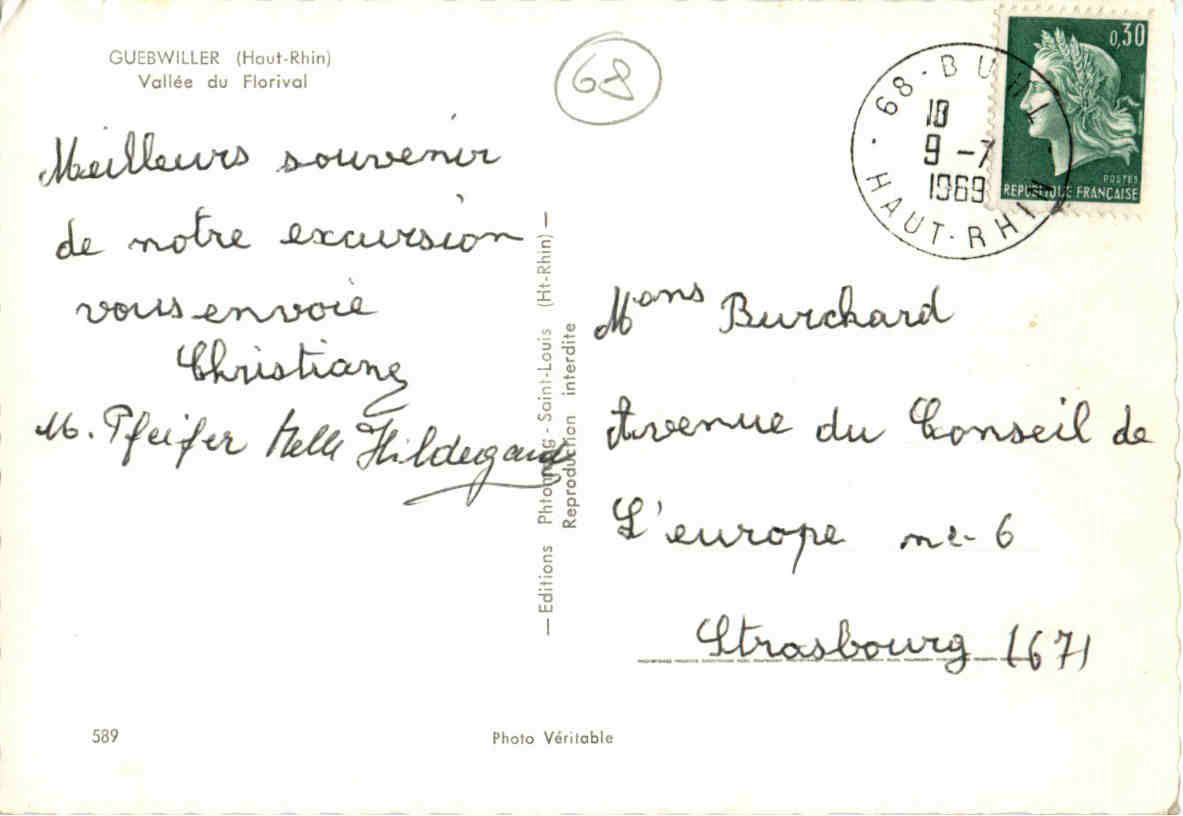 GUEBWILLER (Haut-Rhin)
Vallée du Florival
68
0,30
POSTES
REPUBLIQUE FRANÇAISE
68 - BUHL
HAUT-RHIN
18
9-7
1969
Meilleurs souvenir
de notre excursion
vous envoie
Christiane
M. Pfeifer Melle Hildegard
— Editions Phtomag - Saint-Louis (Ht-Rhin) —
Reproduction interdite
Mons Burchard
Avenue du Conseil de
L'europe
Strasbourg (67)
589
Photo Véritable